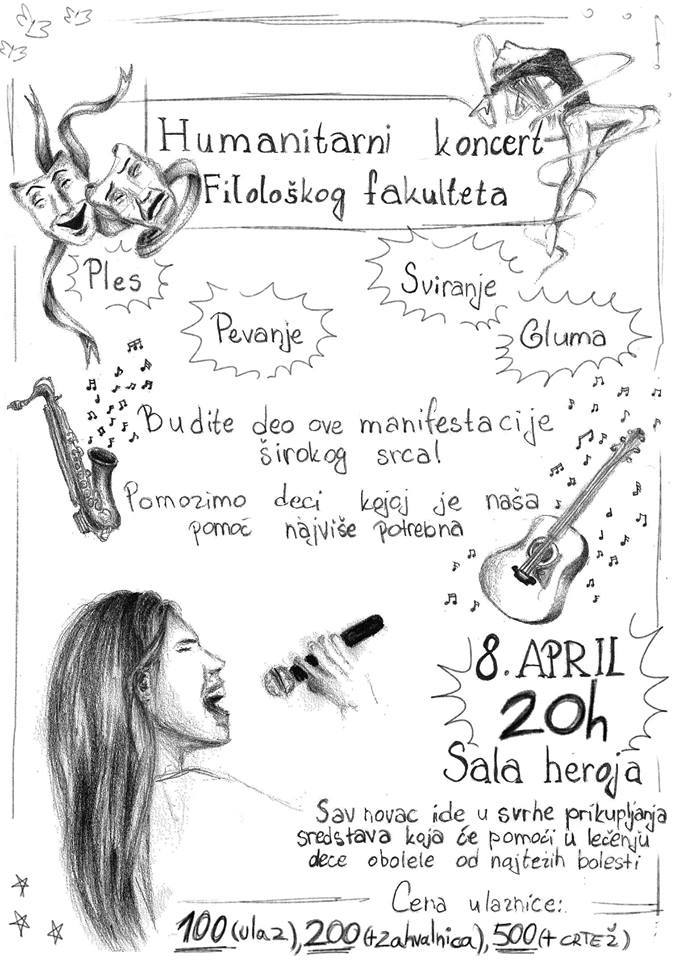 Humanitarni koncert
Filološkog fakulteta
Ples
Sviranje
Pevanje
Gluma
Budite deo ove manifestacije
širokog srca!
Pomozimo deci kojoj je naša
pomoć najviše potrebna
8. APRIL
20h
Sala heroja
Sav novac ide u svrhe prikupljanja
sredstava koja će pomoći u lečenju
dece obolele od najtežih bolesti
Cena ulaznice:
100 (ulaz), 200 (+zahvalnica), 500 (+ CRTEŽ)